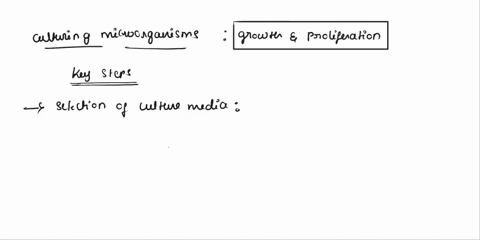 culturing microorganisms : growth & proliferation
Key steps
→ selection of culture media :